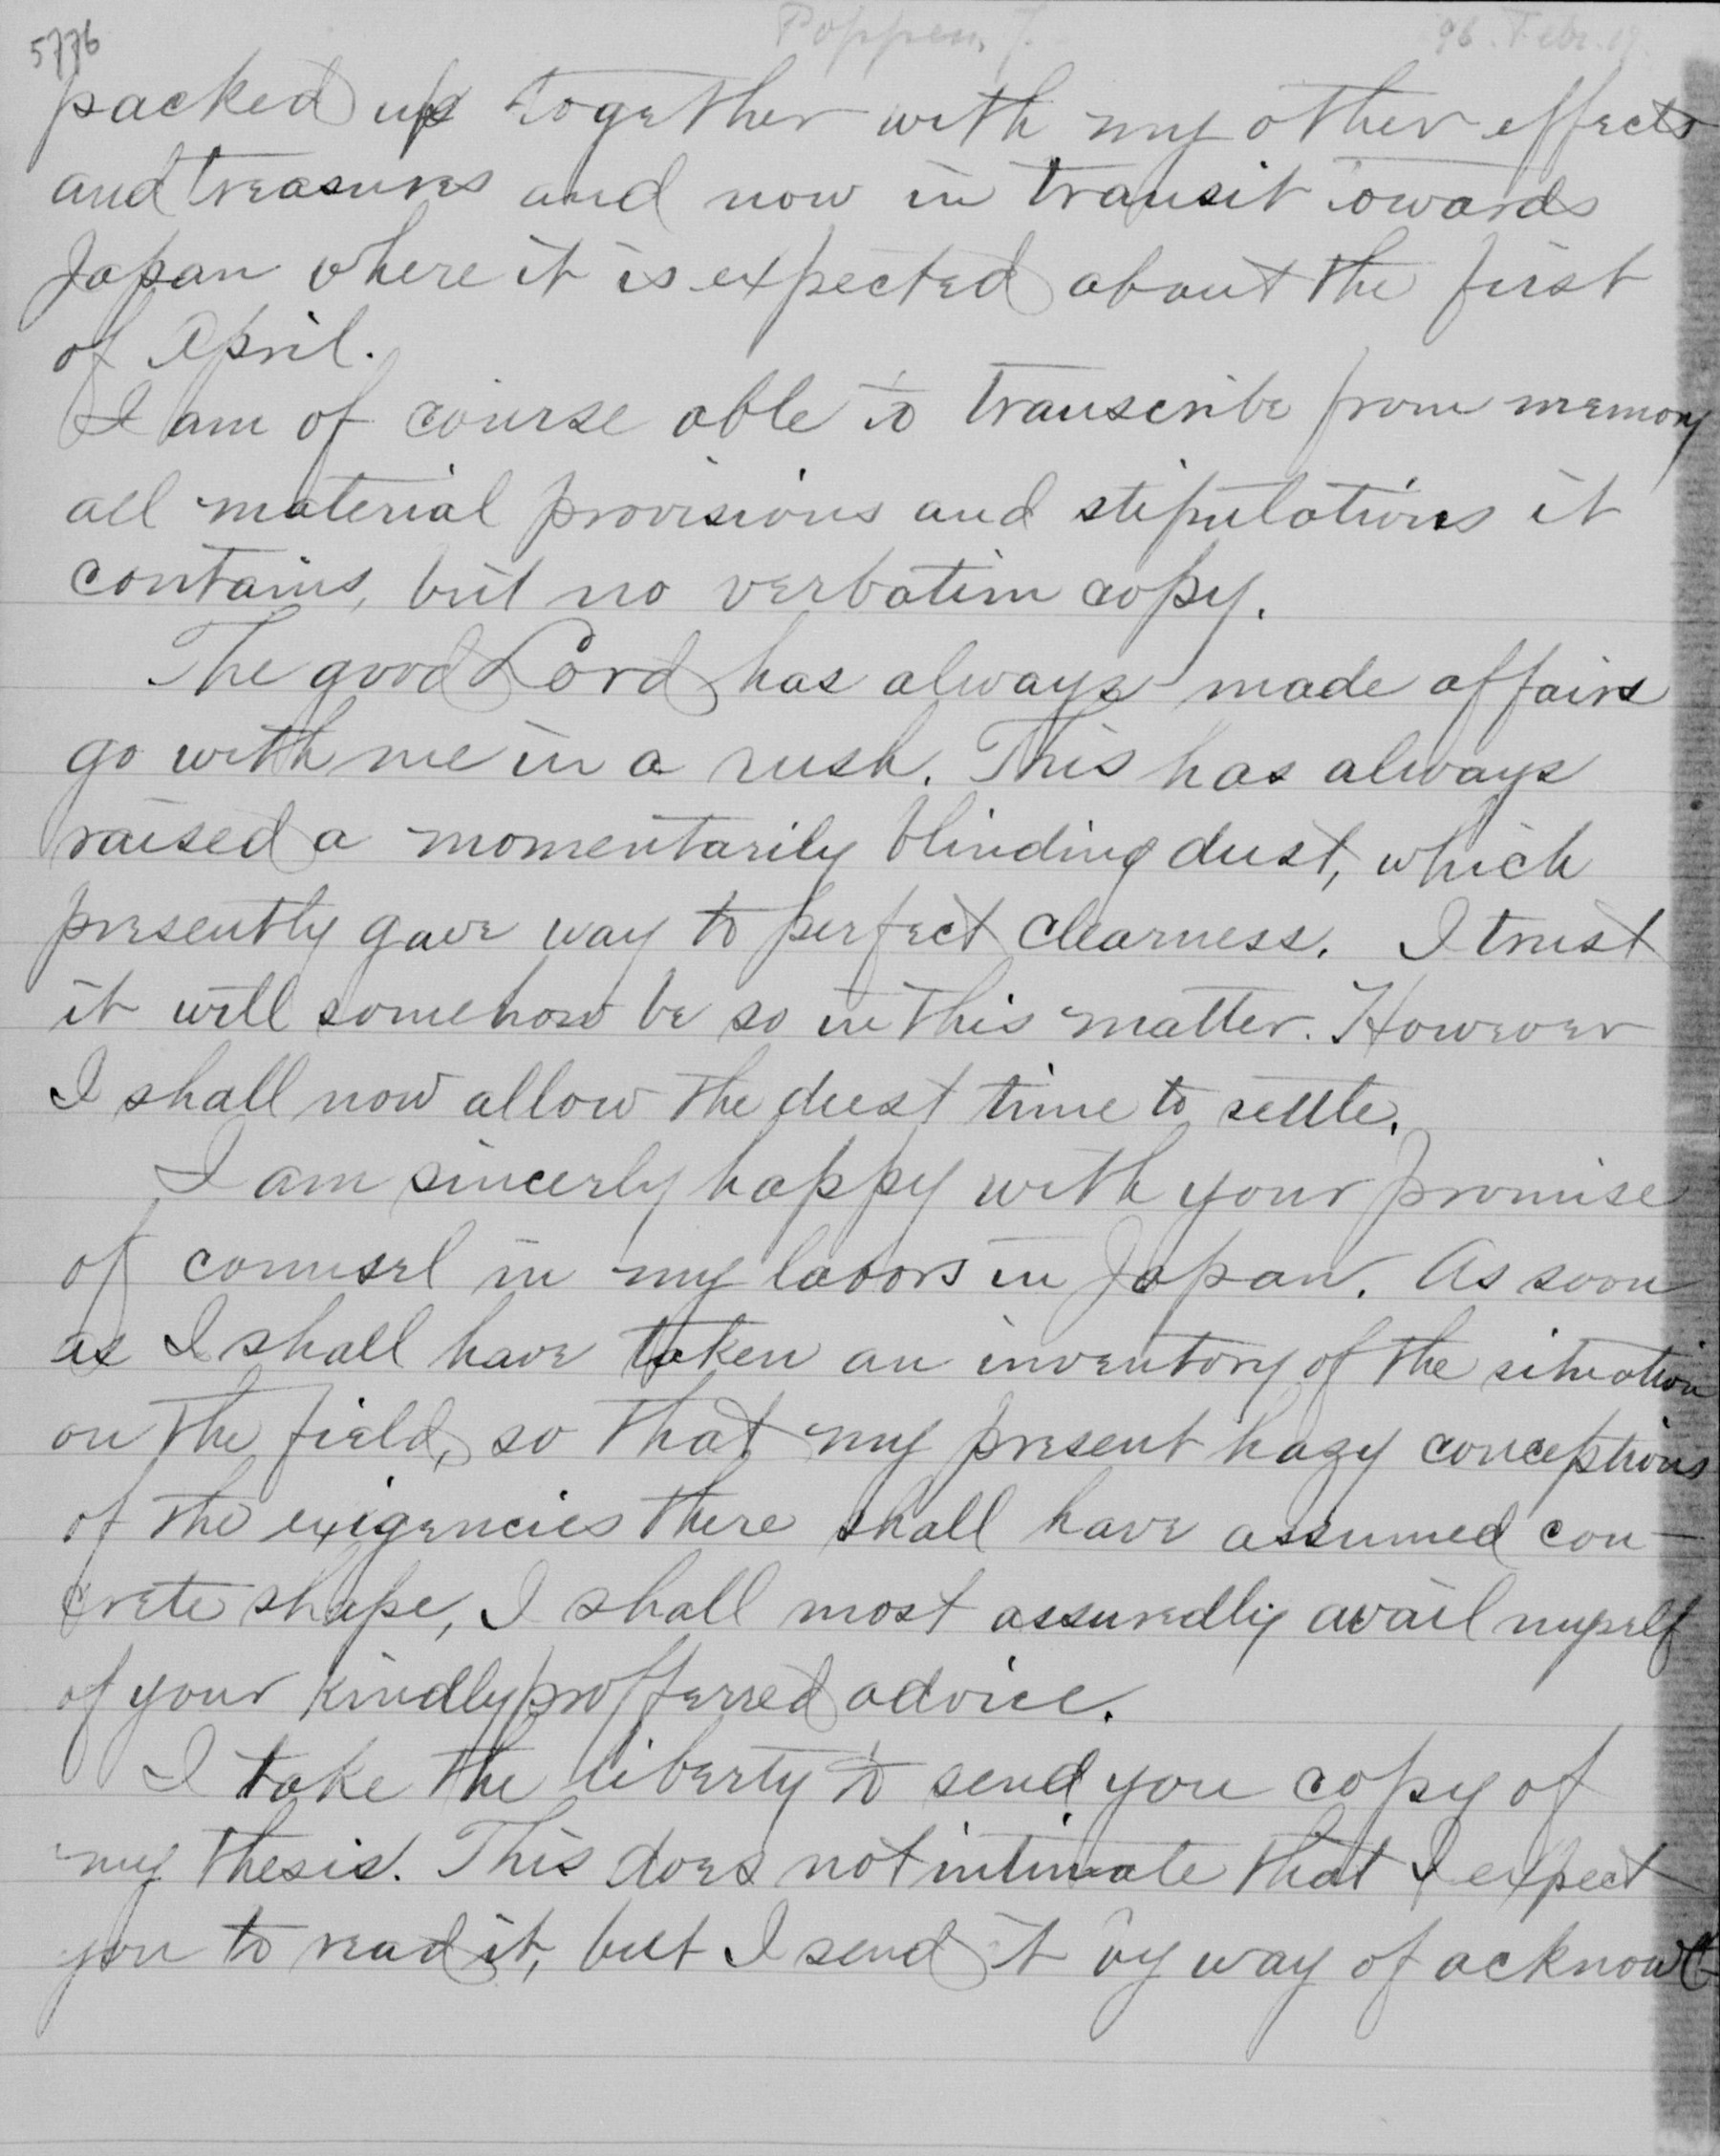 5776
Poppen, J.
96. Febr. 19.
packed up together with my other effects
and treasures and now in transit towards
Japan where it is expected about the first
of April.
I am of course able to transcribe from memory
all material provisions and stipulations it
contains, but no verbatim copy.
The good Lord has always made affairs
go with me in a rush. This has always
raised a momentarily blinding dust, which
presently gave way to perfect clearness. I trust
it will somehow be so in this matter. However
I shall now allow the dust time to settle.
I am sincerly happy with your promise
of counsel in my labors in Japan. As soon
as I shall have taken an inventory of the situation
on the field, so that my present hazy conceptions
of the exigencies there shall have assumed con-
crete shape, I shall most assuredly avail myself
of your kindly profferred advice.
I take the liberty to send you copy of
my thesis. This does not intimate that I expect
you to read it, but I send it by way of acknowl-